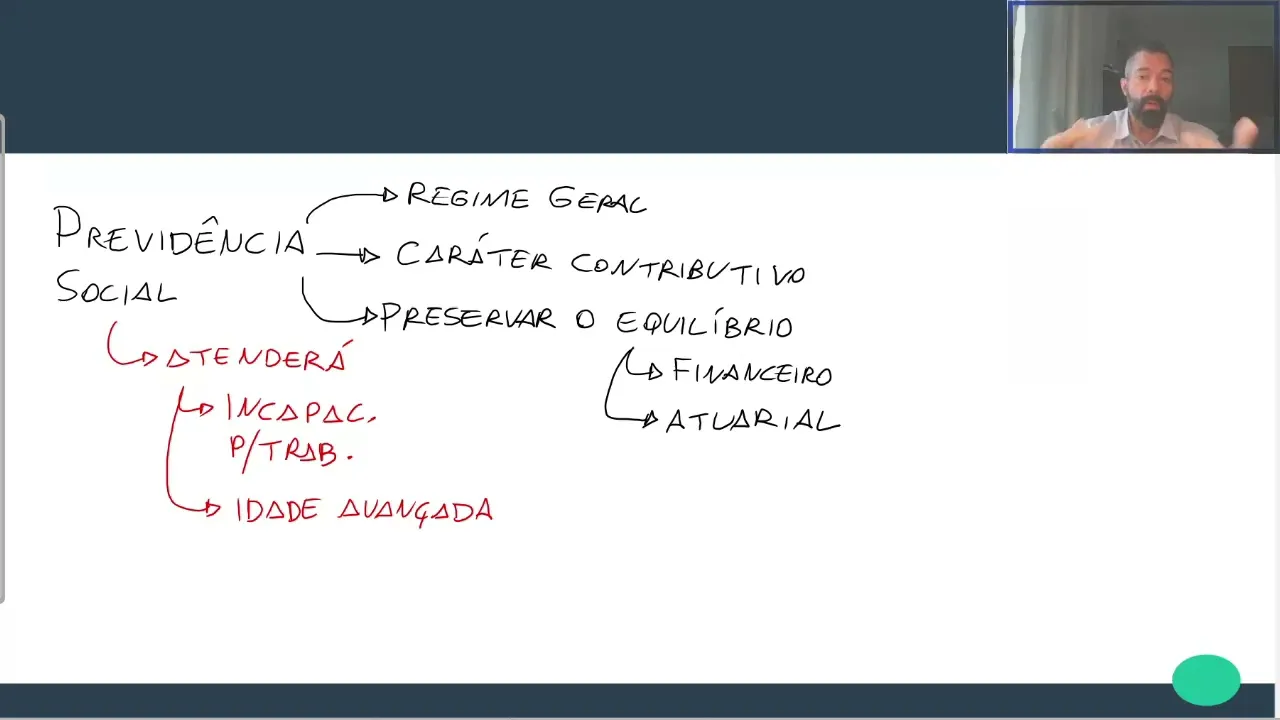 PREVIDÊNCIA
SOCIAL
REGIME GERAL
CARÁTER CONTRIBUTIVO
PRESERVAR O EQUILÍBRIO
FINANCEIRO
ATUARIAL
ATENDERÁ
INCAPAC.
P/TRAB.
IDADE AVANÇADA